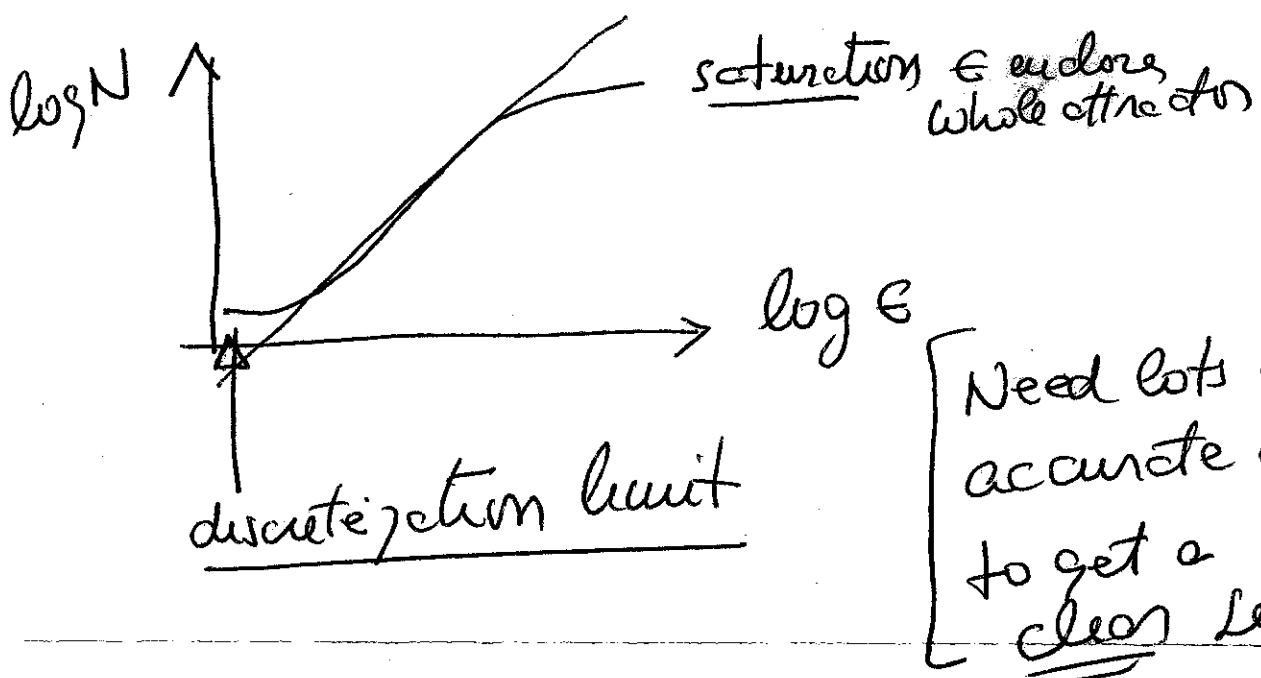 log N
saturation ϵ encloses
whole attractor
log ϵ
discretization limit
Need lots
accurate
to get a
clear